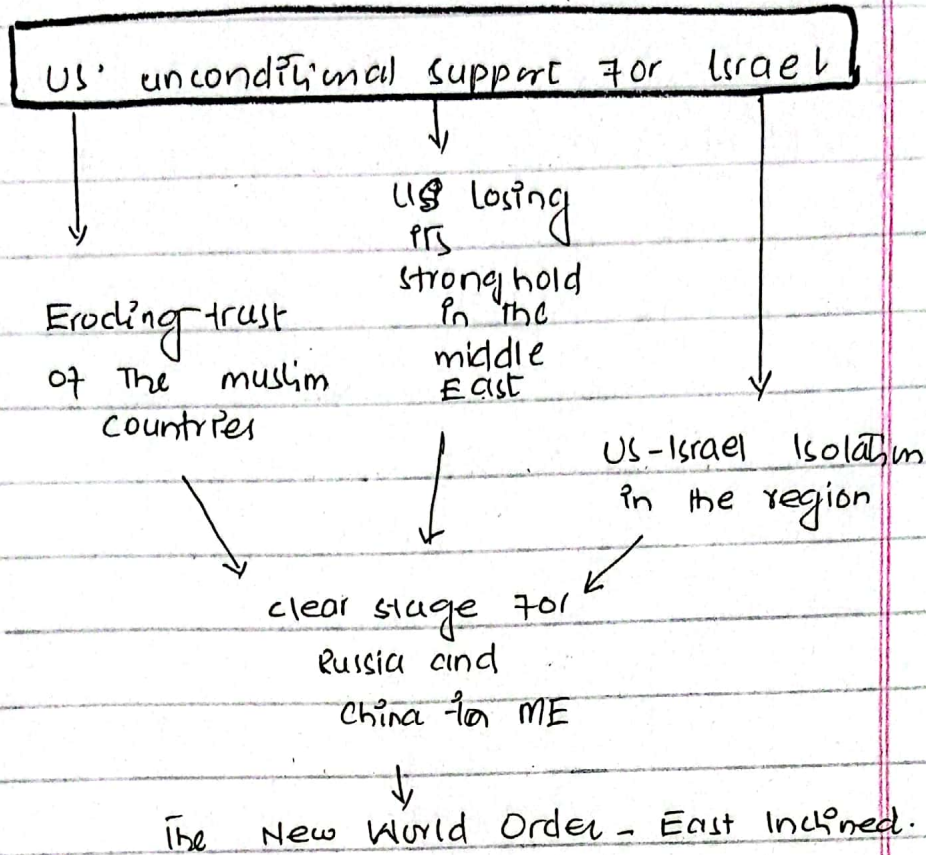 US' unconditional support for Israel
Eroding trust
of The muslim
countries
US losing
its
stronghold
in the
middle
East
US-Israel Isolation
in the region
clear stage for
Russia and
China in ME
The New World Order - East Inclined.